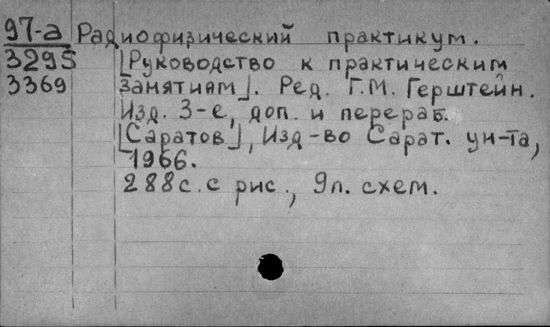 97-а Радиофизический практикум.
3295 [Руководство к практическим
3369 занятиям]. Ред. Г.М. Герштейн.
Изд. 3-е, доп. и перераб.
[Саратов], Изд-во Сарат. ун-та,
1966.
288с. с рис., 9л. схем.